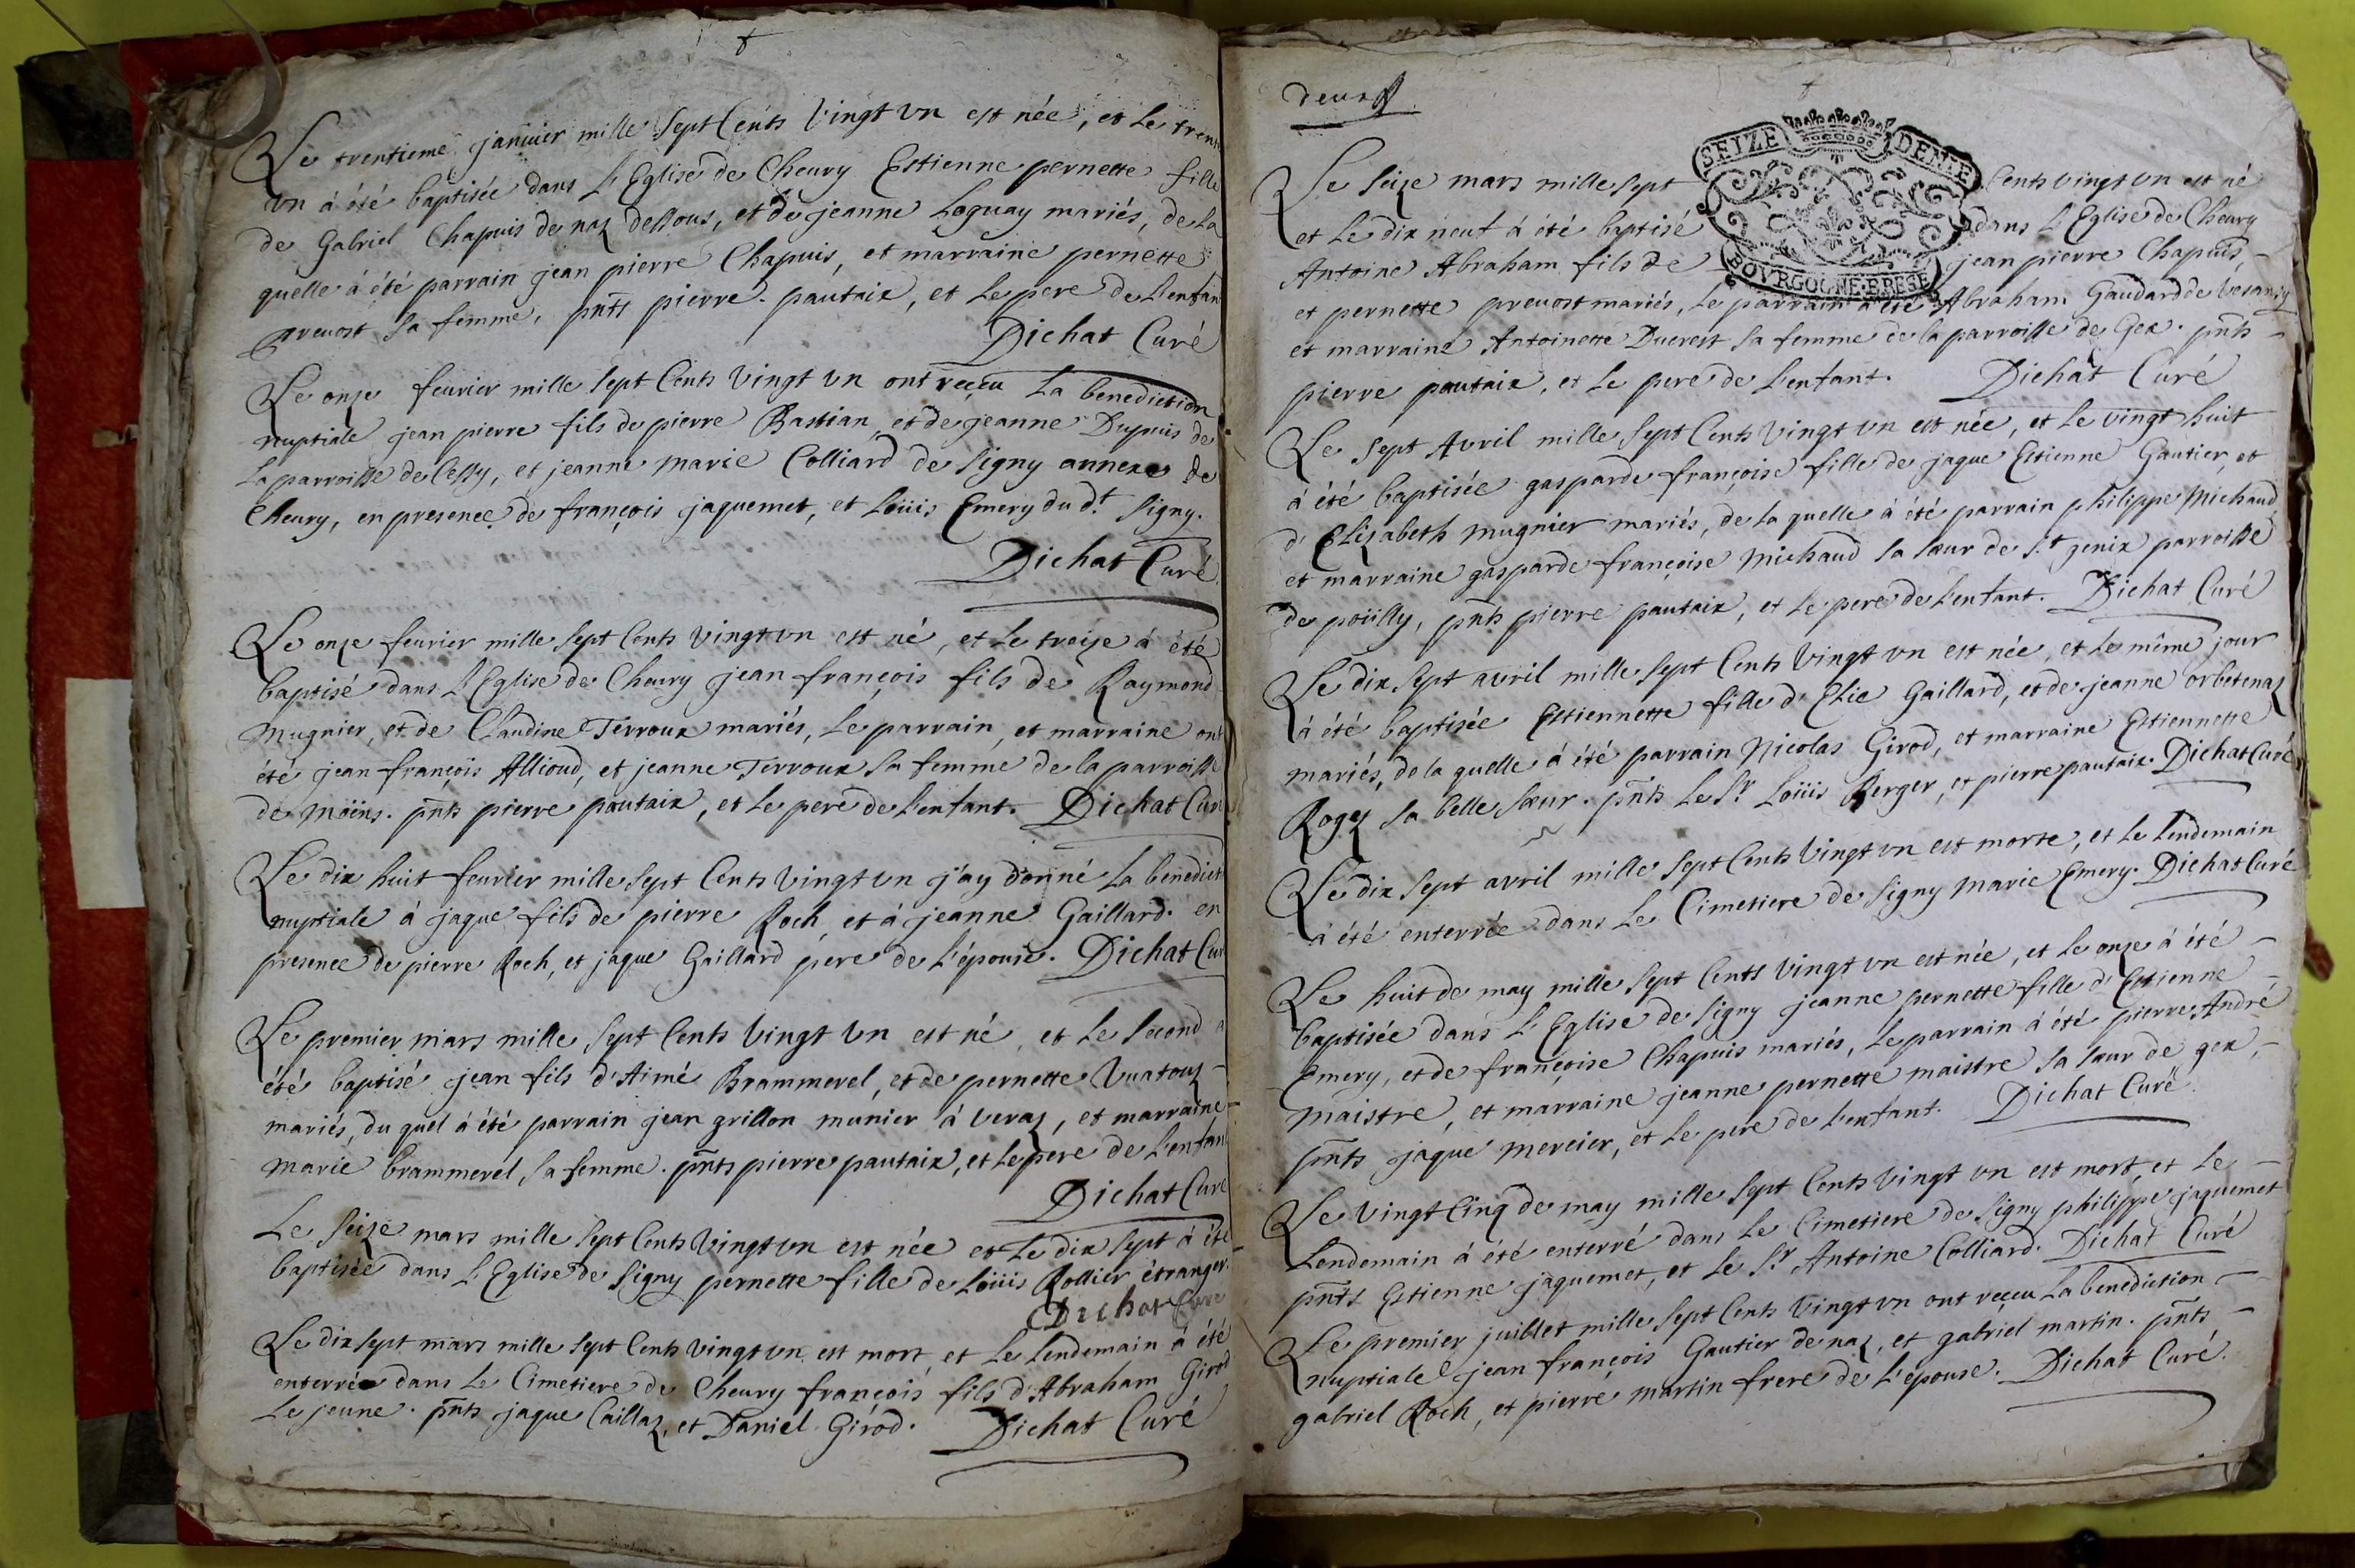 Le trentieme janvier mille sept Cents vingt vn est née, et le trent
vn à été baptisée dans L'Eglise de Cheury Estienne pernette fille
de Gabriel Chapuis de naz dessous, et de jeanne Loguay mariés, de la
quelle à été parrain jean pierre Chapuis, et marraine pernette
preuost sa femme, pnts pierre pautaix, et le pere de l'enfan
Dichat Curé
Le onze feurier mille sept Cents vingt vn ont reçeu La benediction
nuptiale jean pierre fils de pierre Bastian et de jeanne Dupuis de
La parroisse de Cessy, et jeanne marie Colliard de Signy annexe de
Cheury, en presence de françois jaquemet, et Loüis Emery du dt. Signy.
Dichat Curé
Le onze feurier mille sept Cents vingt vn est né, et le treize à été
baptisé dans L'Eglise de Cheury jean françois fils de Raymond
mugnier, et de Claudine Terroux mariés, Le parrain, et marraine ont
été jean françois Allioud, et jeanne Terroux sa femme de la parroisse
de Moëns. pnts pierre pautaix, et le pere de l'enfant. Dichat Cur
Le dix huit feurier mille sept Cents vingt vn j'ay donné La benedict
nuptiale à jaque fils de pierre Roch, et à jeanne Gaillard. en
presence de pierre Roch, et jaque Gaillard pere de l'épouse. Dichat Cur
Le premier mars mille sept Cents vingt vn est né, et le second a
été baptisé jean fils d'Aimé Brammerel, et de pernette Vuatouz
mariés, du quel à été parrain jean grillon munier à veraz, et marraine
marie brammerel sa femme. pnts pierre pautaix, et le pere de l'enfan
Dichat Curé
Le seize mars mille sept Cents vingt vn est née et le dix sept à été
baptisée dans L'Eglise de Signy pernette fille de Loüis Rollier étranger.
Dichat Curé
Le dix sept mars mille sept Cents vingt vn est mort, et le lendemain à été
enterré dans le Cimetiere de Cheury françois fils d'Abraham Girod
Le jeune. pnts jaque Caillaz, et Daniel Girod. Dichat Curé
deux
SEIZE DENIE
BOVRGOGNE·BRESE
Le seize mars mille sept Cents vingt vn est né
et le dix neuf à été baptisé dans L'Eglise de Cheury
Antoine Abraham fils de jean pierre Chapuis,
et pernette preuost mariés, le parrain à été Abraham Gaudard de Vesancy
et marraine Antoinette Ducrest sa femme de la parroisse de Gex. pnts
pierre pautaix, et le pere de l'enfant. Dichat Curé
Le sept Avril mille sept Cents vingt vn est née, et le vingt huit
à été baptisée gasparde françoise fille de jaque Estienne Gautier, et
d'Elizabeth mugnier mariés, de la quelle à été parrain philippe Michaud
et marraine gasparde françoise Michaud sa sœur de st. genix parroisse
de poüilly, pnts pierre pautaix, et le pere de l'enfant. Dichat Curé
Le dix sept avril mille sept Cents vingt vn est née, et le même jour
à été baptisée Estiennette fille d'Elie Gaillard, et de jeanne orbetenaz
mariés, de la quelle à été parrain Nicolas Girod, et marraine Estiennette
Rogez sa belle sœur. pnts le Sr. Loüis Berger, et pierre pautaix. Dichat Curé
Le dix sept avril mille sept Cents vingt vn est morte, et le lendemain
à été enterrée dans le Cimetiere de Signy marie Emery. Dichat Curé
Le huit de may mille sept Cents vingt vn est née, et le onze à été
baptisée dans L'Eglise de Signy jeanne pernette fille d'Estienne
Emery, et de françoise Chapuis mariés, le parrain à été pierre André
maistre, et marraine jeanne pernette maistre sa sœur de gex,
pnts jaque mercier, et le pere de l'enfant. Dichat Curé
Le vingt Cinq de may mille sept Cents vingt vn est mort, et le
Lendemain à été enterré dans le Cimetiere de Signy philippe jaquemet
pnts Estienne jaquemet, et le Sr. Antoine Colliard. Dichat Curé
Le premier juillet mille sept Cents vingt vn ont reçeu La benediction
nuptiale jean françois Gautier de naz, et gabriel martin. pnts
gabriel Roch, et pierre martin frere de l'épouse. Dichat Curé.